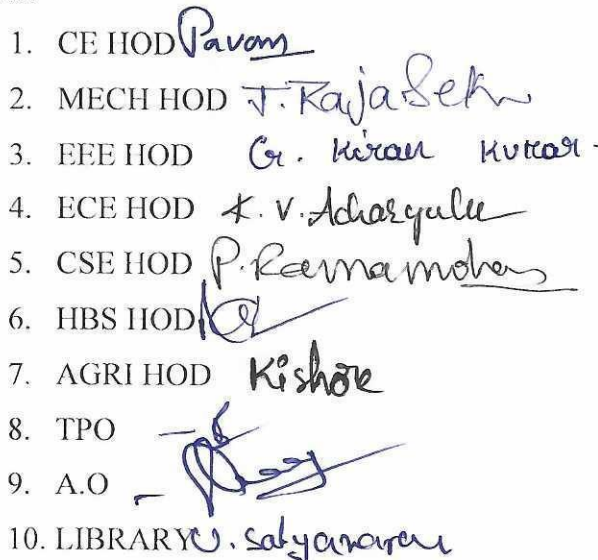 1. CE HOD Pavan
2. MECH HOD J. RajaSekh
3. EEE HOD G. Kiran Kumar
4. ECE HOD K. V. Acharyulu
5. CSE HOD P. Ramamohan
6. HBS HOD
7. AGRI HOD Kishore
8. TPO
9. A.O
10. LIBRARY U. Satyanarayan